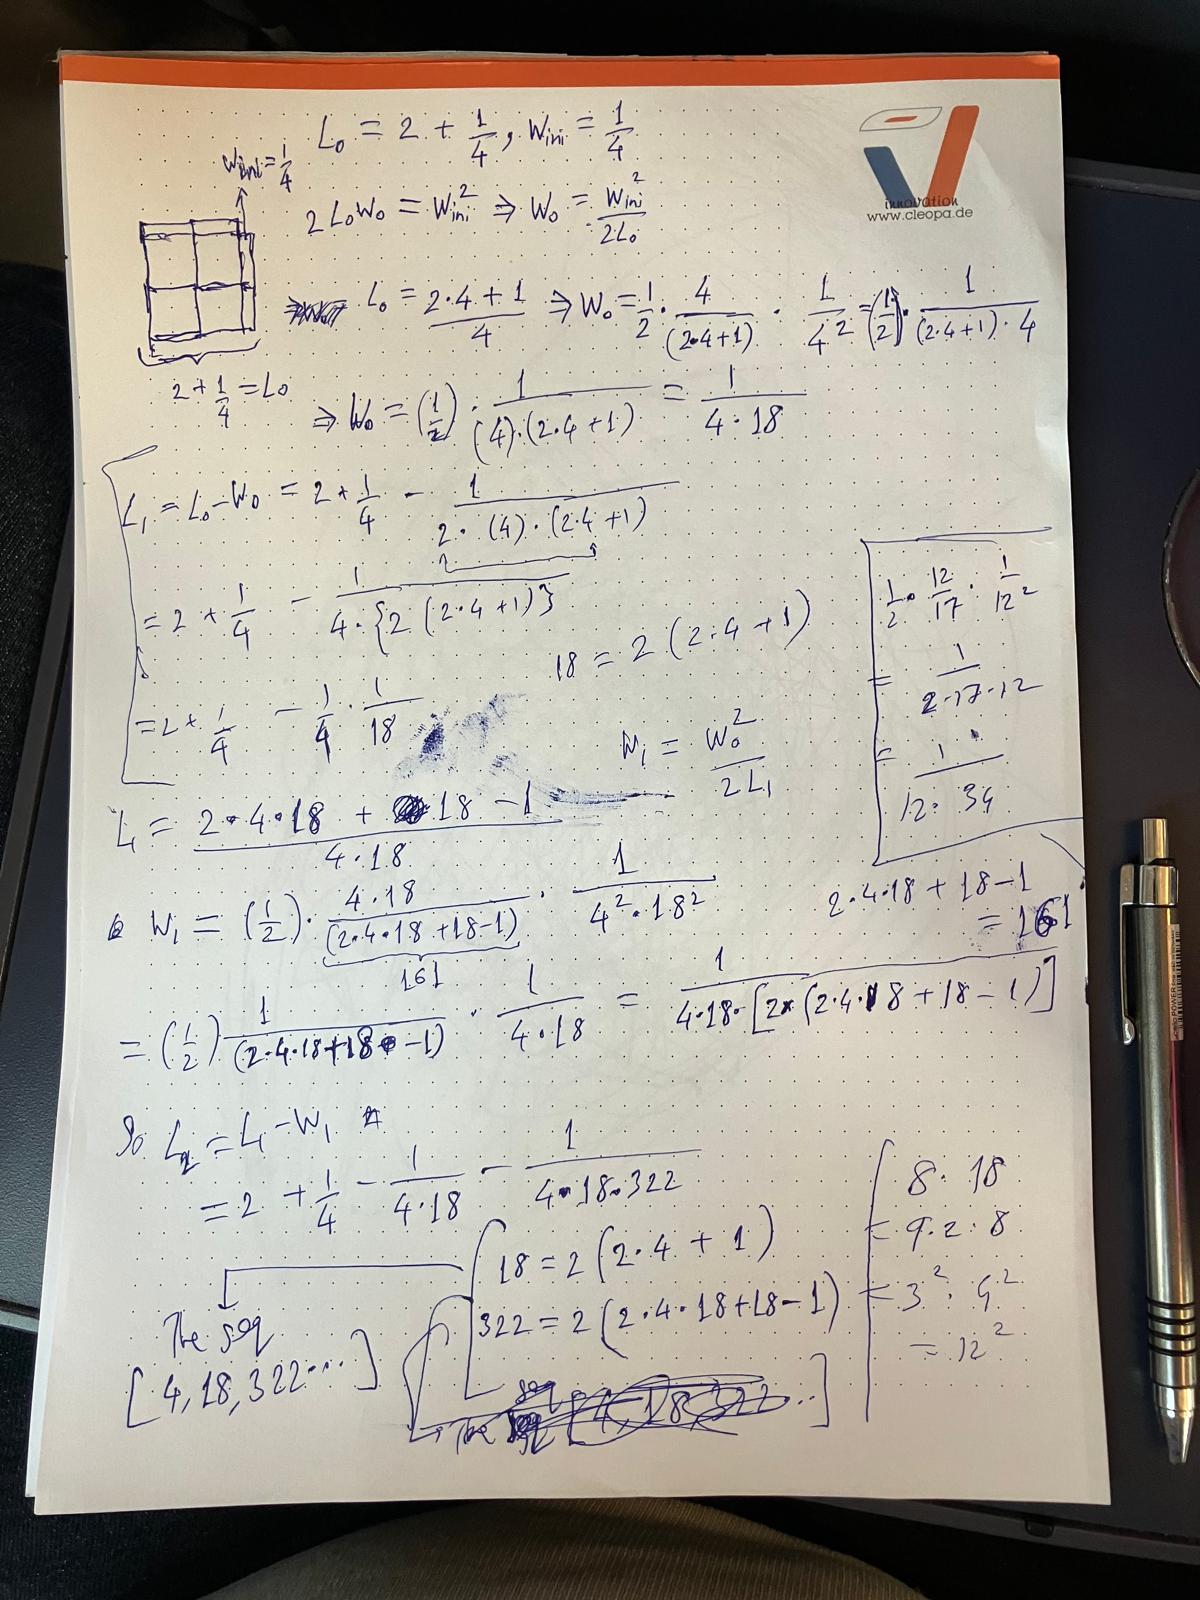 L₀ = 2 + 1/4, W_ini = 1/4
innovation
www.cleopa.de
W_ini = 1/4
2L₀W₀ = W_ini² ⇒ W₀ = W_ini²/2L₀
L₀ = (2·4+1)/4 ⇒ W₀ = 1/2 · 4/(2·4+1) · 1/4² = (1/2) · 1/((2·4+1)·4)
2 + 1/4 = L₀
⇒ W₀ = (1/2) · 1/((4)·(2·4+1)) = 1/(4·18)
L₁ = L₀ - W₀ = 2 + 1/4 - 1/(2·(4)·(2·4+1))
= 2 + 1/4 - 1/(4·{2(2·4+1)})
18 = 2(2·4+1)
= 2 + 1/4 - 1/4 · 1/18
1/2 · 12/17 · 1/12²
= 1/(2·17·12)
= 1/(12·34)
W₁ = W₀²/2L₁
L₁ = (2·4·18 + 18 - 1)/(4·18)
W₁ = (1/2) · 4·18/(2·4·18+18-1) · 1/(4²·18²)
161
2·4·18+18-1
= 161
= (1/2) 1/(2·4·18+18-1) · 1/(4·18) = 1/(4·18·[2·(2·4·18+18-1)])
So L₂ = L₁ - W₁
= 2 + 1/4 - 1/(4·18) - 1/(4·18·322)
18 = 2(2·4+1)
322 = 2(2·4·18+18-1)
The seq
[4, 18, 322...]
8·18
= 9·2·8
= 3²·4²
= 12²